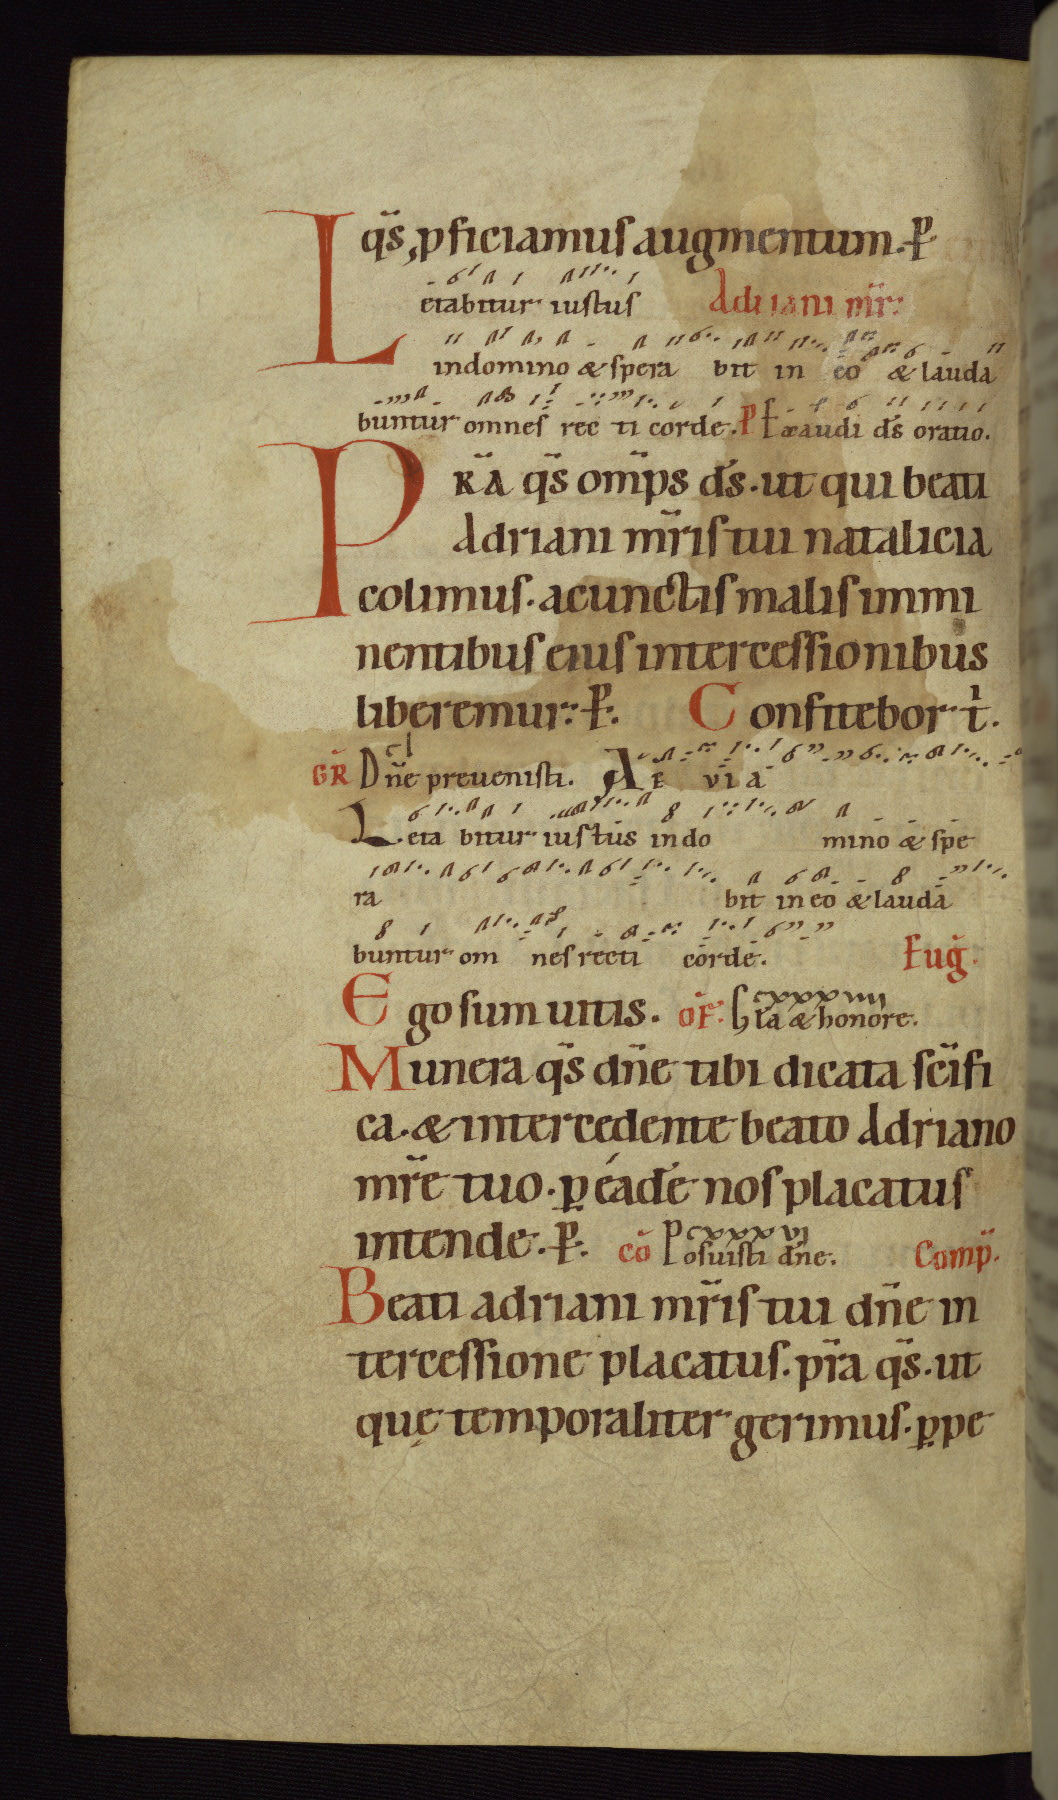 q̄s, ꝓficiamus augmentum. P̶.
Letabitur iustus Adriani mr̄.
in domino & spera bit in eo & lauda
buntur omnes rec ti corde. P̄ Exaudi d̄s oratio.
PR̄A q̄s om̄ps d̄s. ut qui beati
Adriani mr̄is tui natalicia
colimus. a cunctis malis immi
nentibus eius intercessionibus
liberemur: P̶. Confitebor t̄.
GR̄ Dn̄e prevenisti. AE VIA
Leta bitur iustus in do mino & spe
ra bit in eo & lauda
buntur om nes recti corde. Eug̅.
Ego sum uitis. OF̄. Gl̄a & honore. cxxxiiii
Munera q̄s dn̄e tibi dicata sc̄ifi
ca. & intercedente beato Adriano
mr̄e tuo. ꝑ eadē nos placatus
intende. P̶. cō Posuisti dn̄e. cxxxvi Comp̄.
Beati adriani mr̄is tui dn̄e in
tercessione placatus. pr̄a q̄s. ut
quę temporaliter gerimus. ꝑpe